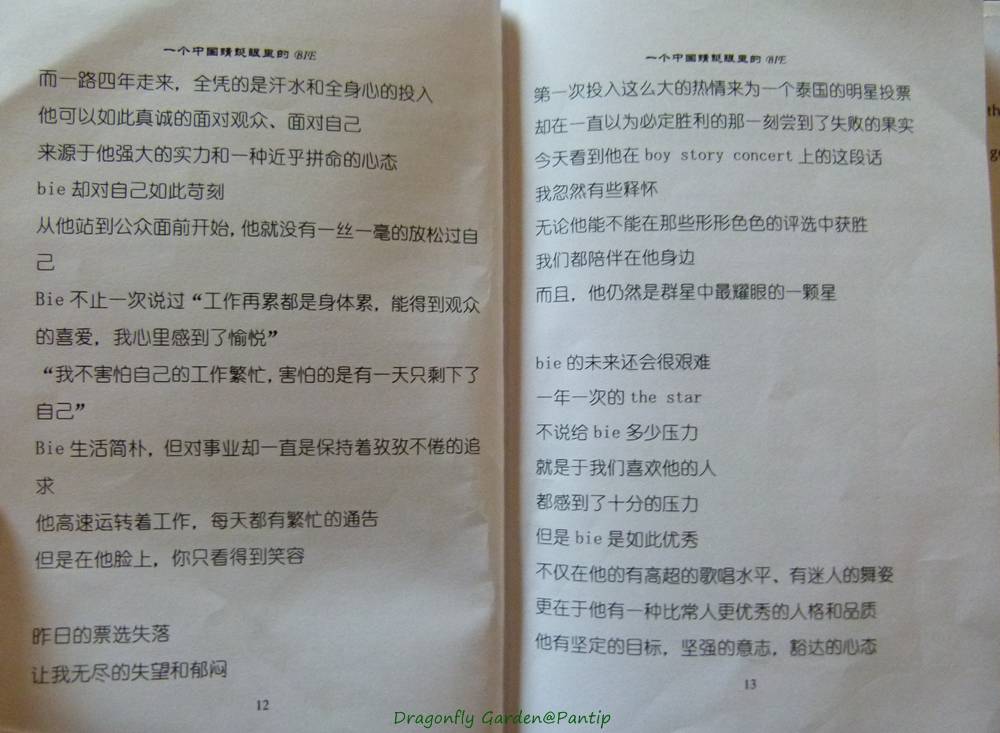 一个中国蜻蜓眼里的 BIE
而一路四年走来，全凭的是汗水和全身心的投入
他可以如此真诚的面对观众、面对自己
来源于他强大的实力和一种近乎拼命的心态
bie 却对自己如此苛刻
从他站到公众面前开始，他就没有一丝一毫的放松过自
己
Bie 不止一次说过“工作再累都是身体累，能得到观众
的喜爱，我心里感到了愉悦”
“我不害怕自己的工作繁忙，害怕的是有一天只剩下了
自己”
Bie 生活简朴，但对事业却一直是保持着孜孜不倦的追
求
他高速运转着工作，每天都有繁忙的通告
但是在他脸上，你只看得到笑容
昨日的票选失落
让我无尽的失望和郁闷
12
一个中国蜻蜓眼里的 BIE
第一次投入这么大的热情来为一个泰国的明星投票
却在一直以为必定胜利的那一刻尝到了失败的果实
今天看到他在 boy story concert 上的这段话
我忽然有些释怀
无论他能不能在那些形形色色的评选中获胜
我们都陪伴在他身边
而且，他仍然是群星中最耀眼的一颗星
bie 的未来还会很艰难
一年一次的 the star
不说给 bie 多少压力
就是于我们喜欢他的人
都感到了十分的压力
但是 bie 是如此优秀
不仅在他的有高超的歌唱水平、有迷人的舞姿
更在于他有一种比常人更优秀的人格和品质
他有坚定的目标，坚强的意志，豁达的心态
13
Dragonfly Garden@Pantip